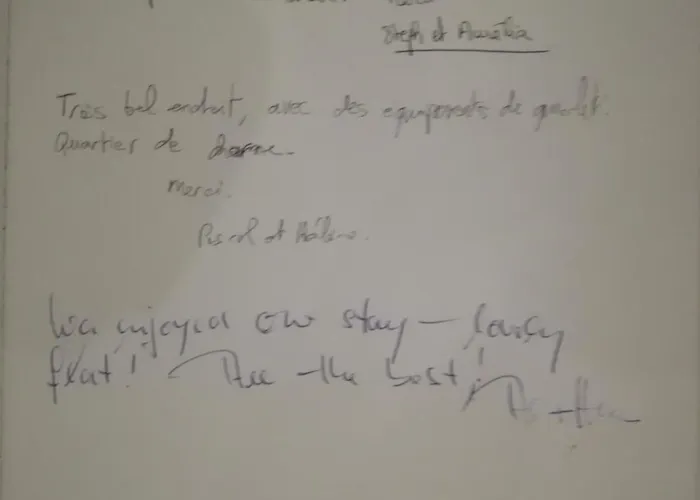 Steph et Aurélia
Très bel endroit, avec des equipements de qualité.
Quartier de charme.
Merci.
Pascal et Hélène.
We enjoyed our stay — lovely
flat! All the best!